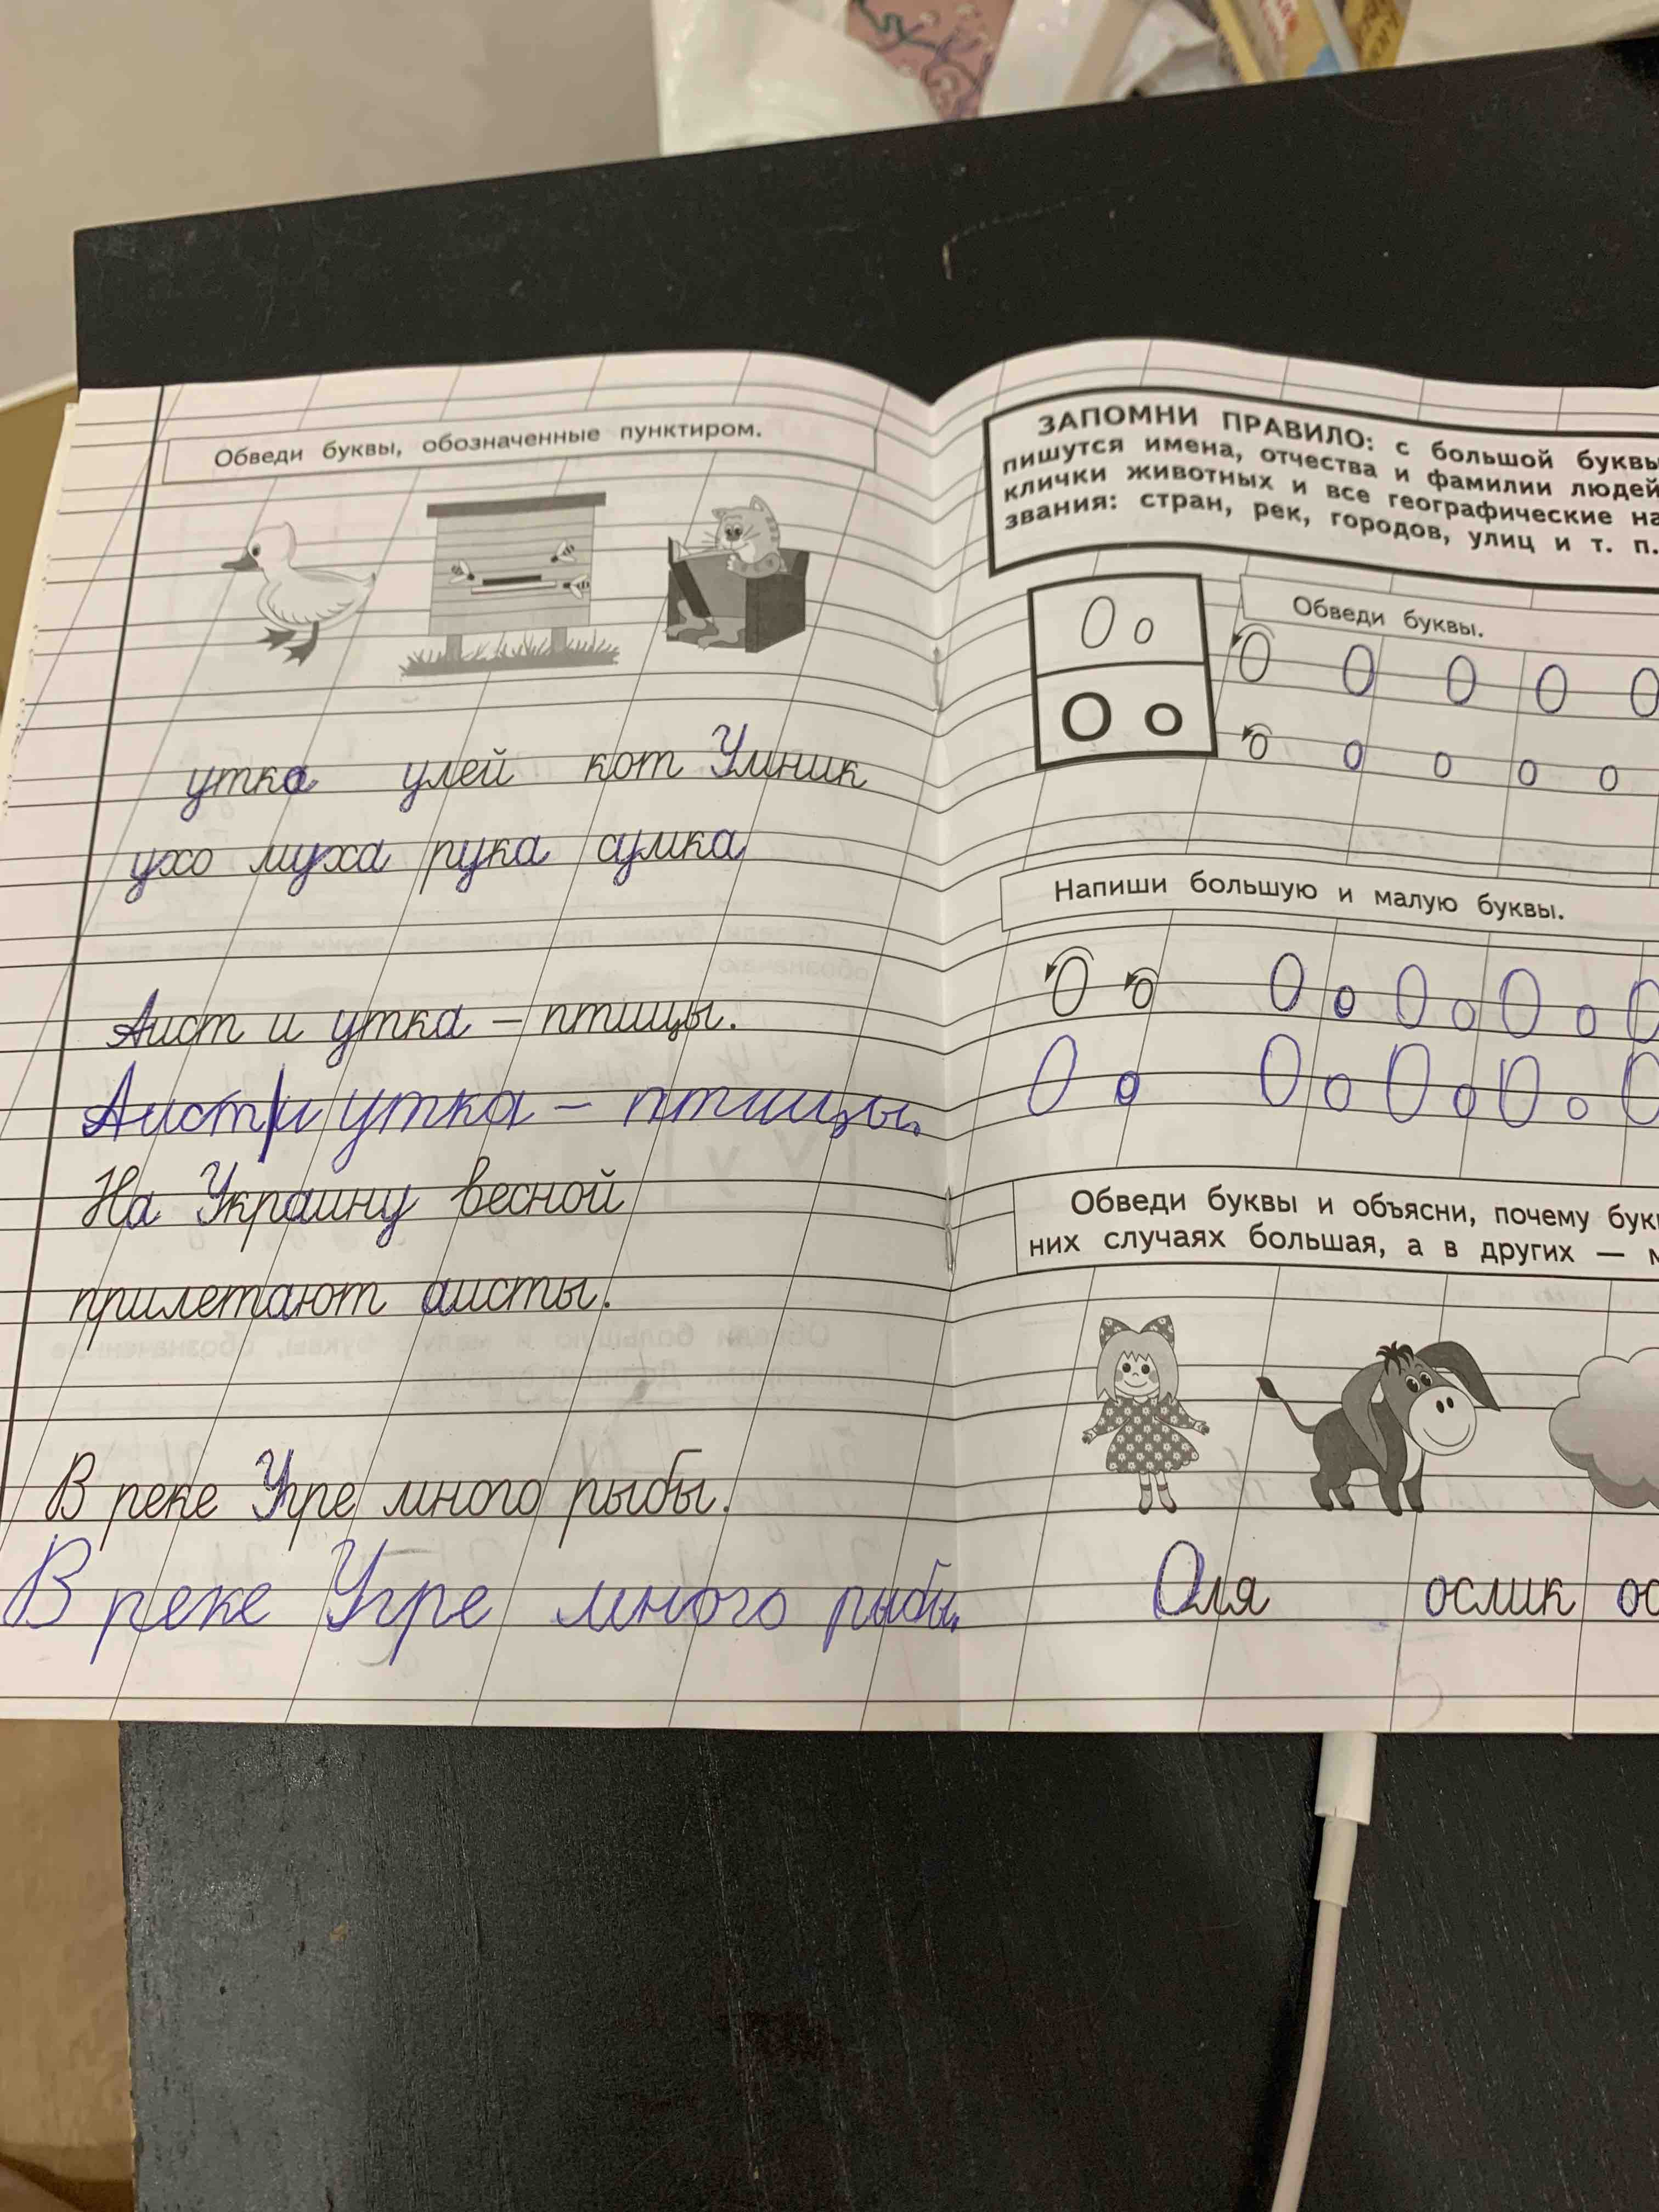 Обведи буквы, обозначенные пунктиром.
утка улей кот Умник
ухо муха рука сумка
Аист и утка – птицы.
Аист и утка – птицы.
На Украину весной
прилетают аисты.
В реке Угре много рыбы.
В реке Угре много рыбы.
ЗАПОМНИ ПРАВИЛО: с большой буквы
пишутся имена, отчества и фамилии людей
клички животных и все географические на
звания: стран, рек, городов, улиц и т. п.
О о
О о
Обведи буквы.
О О О О О
о о о о о
Напиши большую и малую буквы.
О о О о О о О о О
О о О о О о О о О
Обведи буквы и объясни, почему бук
них случаях большая, а в других — м
Оля ослик ос